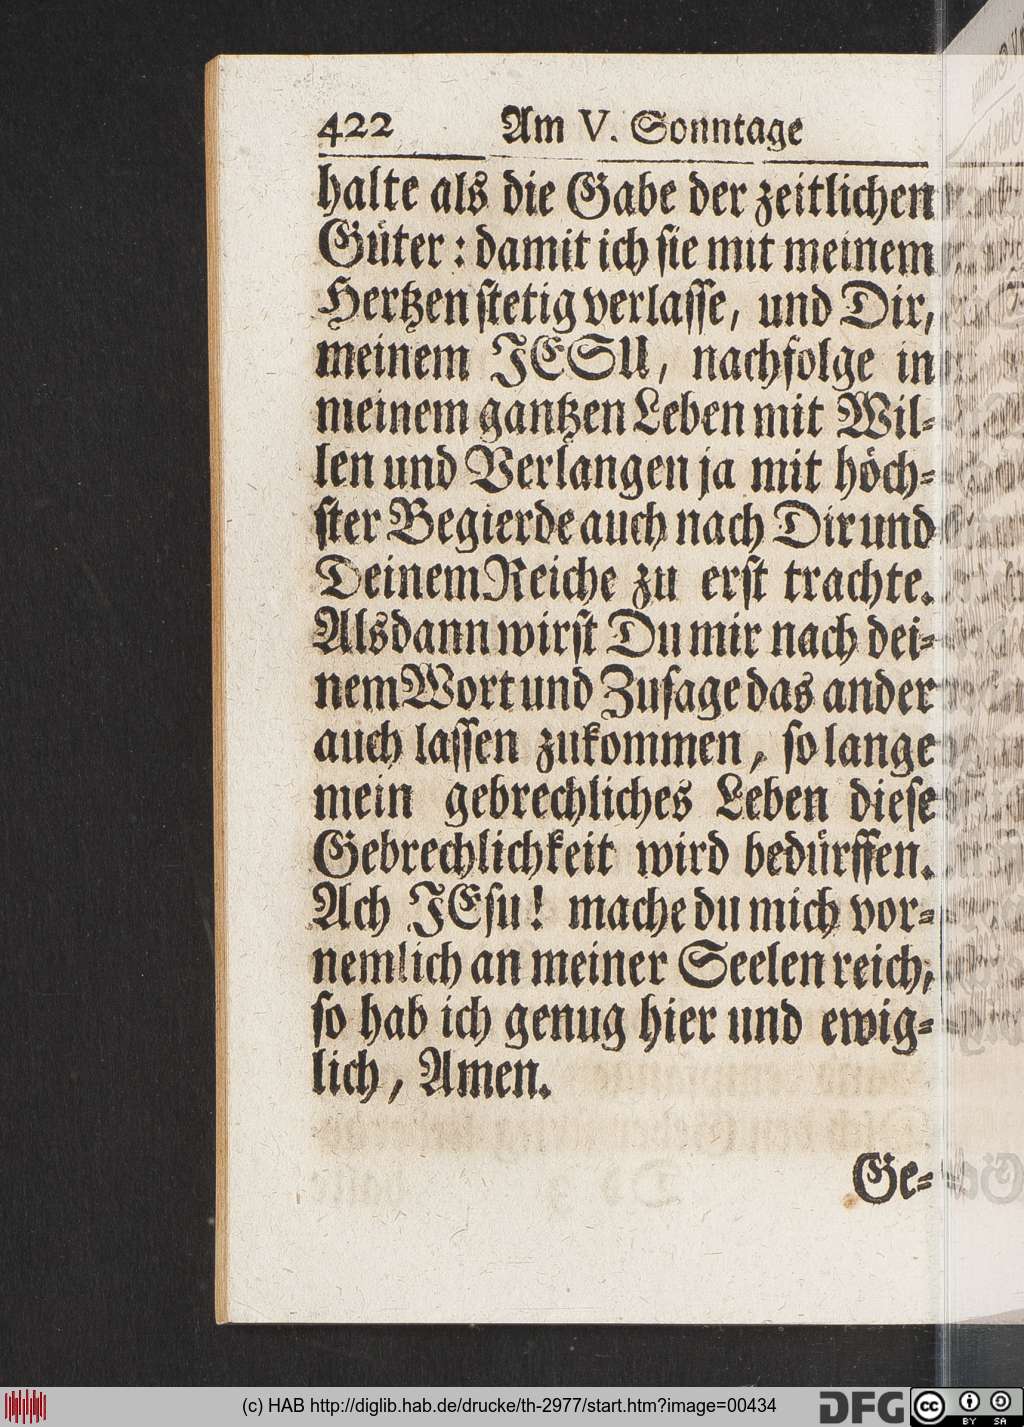 422 Am V. Sonntage
halte als die Gabe der zeitlichen
Güter: damit ich sie mit meinem
Hertzen stetig verlasse, und Dir,
meinem JESU, nachfolge in
meinem gantzen Leben mit Wil-
len und Verlangen ja mit höch-
ster Begierde auch nach Dir und
Deinem Reiche zu erst trachte.
Alsdann wirst Du mir nach dei-
nem Wort und Zusage das ander
auch lassen zukommen, so lange
mein gebrechliches Leben diese
Gebrechlichkeit wird bedürffen.
Ach JEsu! mache du mich vor-
nemlich an meiner Seelen reich,
so hab ich genug hier und ewig-
lich, Amen.
Ge-
(c) HAB http://diglib.hab.de/drucke/th-2977/start.htm?image=00434
DFG
cc BY SA